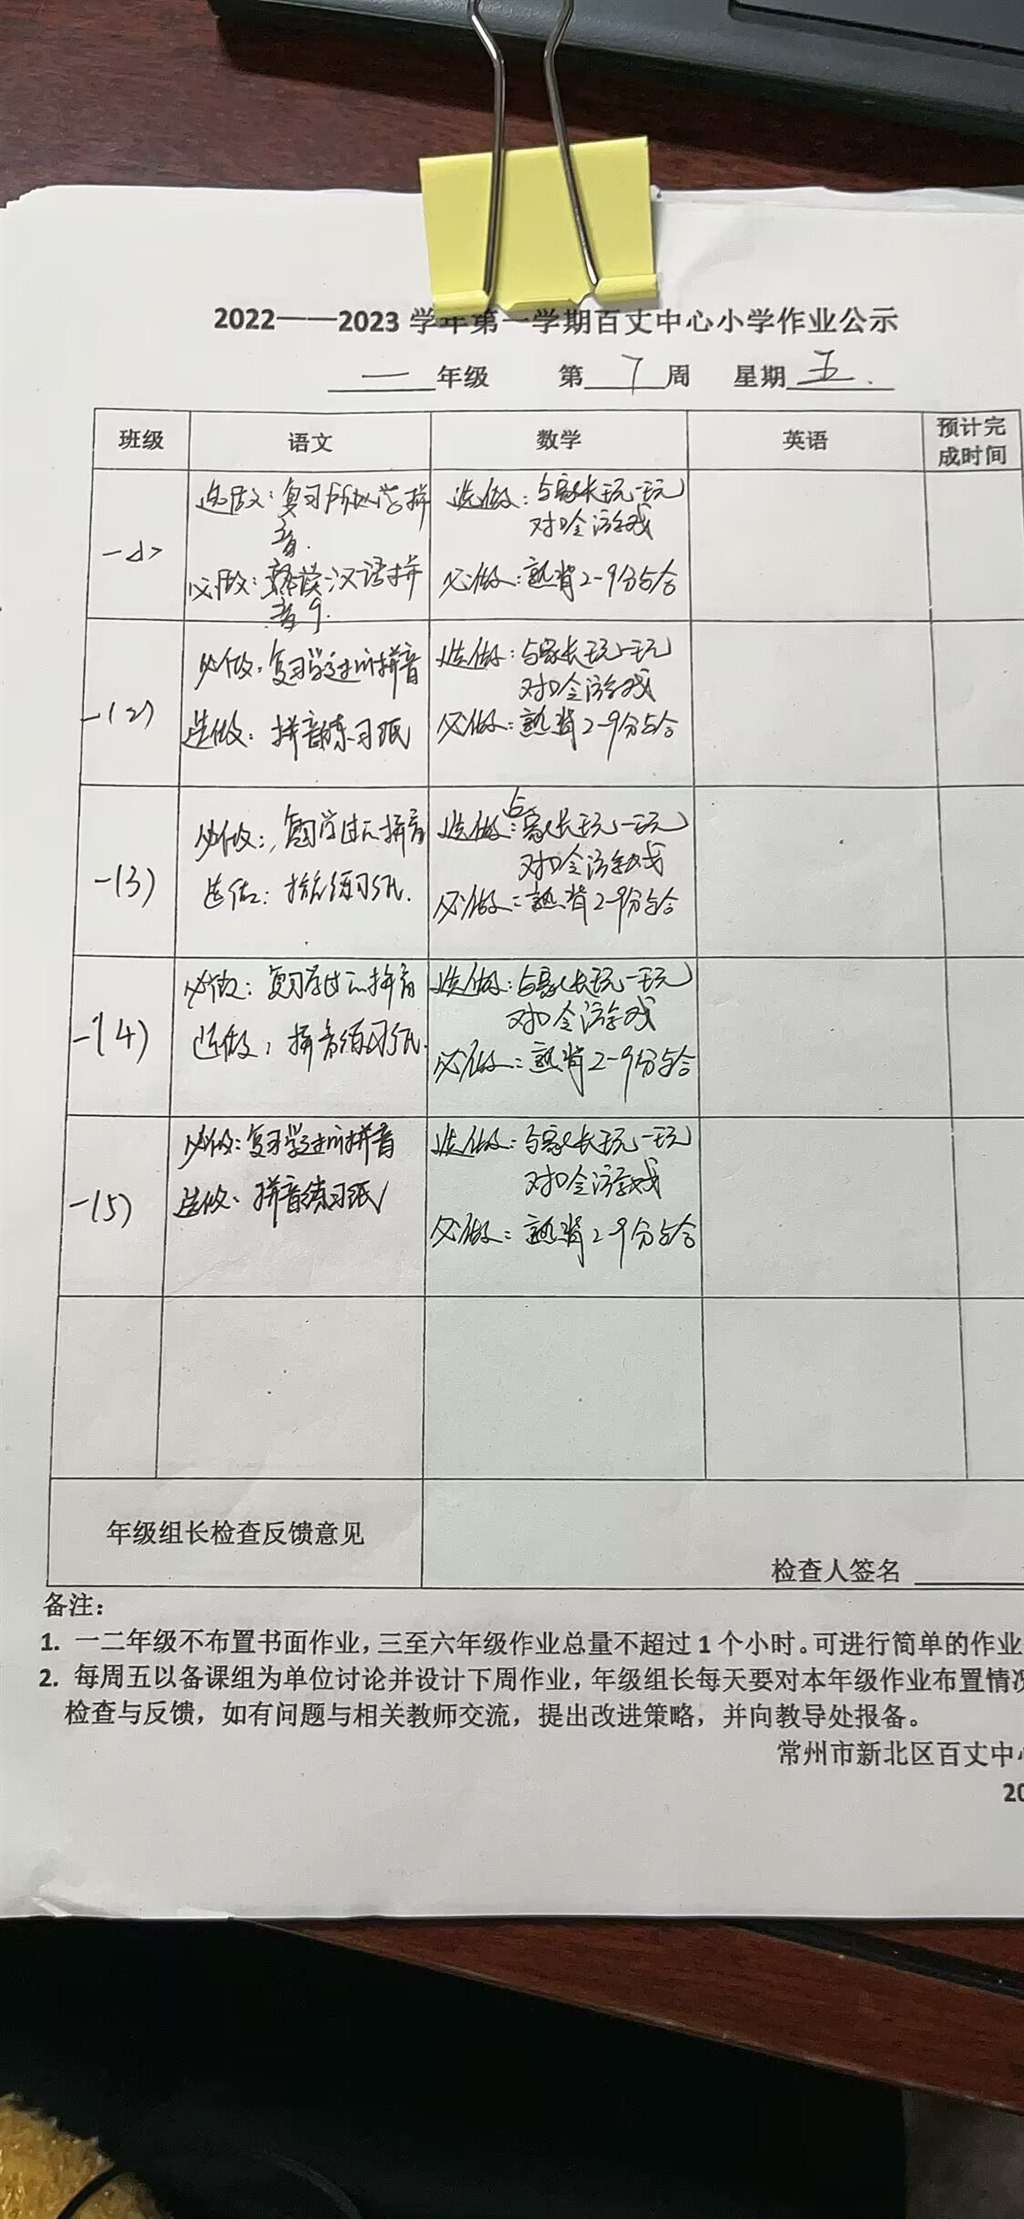 2022——2023 学年第一学期百丈中心小学作业公示
一 年级 第 7 周 星期 五.
班级 语文 数学 英语 预计完成时间
一<1>
选做：复习所学拼音.
必做：熟读汉语拼音9.
选做：与家长玩一玩
对口令游戏
必做：熟背2-9分与合
一(2)
必做：复习学过的拼音
选做：拼音练习纸
选做：与家长玩一玩
对口令游戏
必做：熟背2-9分与合
一(3)
必做：复习学过的拼音
选做：拼音练习纸.
选做：与家长玩一玩
对口令游戏
必做：熟背2-9分与合
一(4)
必做：复习学过的拼音
选做：拼音练习纸.
选做：与家长玩一玩
对口令游戏
必做：熟背2-9分与合
一(5)
必做：复习学过的拼音
选做：拼音练习纸
选做：与家长玩一玩
对口令游戏
必做：熟背2-9分与合
年级组长检查反馈意见
检查人签名
备注：
1. 一二年级不布置书面作业，三至六年级作业总量不超过 1 个小时。可进行简单的作业
2. 每周五以备课组为单位讨论并设计下周作业，年级组长每天要对本年级作业布置情况
检查与反馈，如有问题与相关教师交流，提出改进策略，并向教导处报备。
常州市新北区百丈中心
20